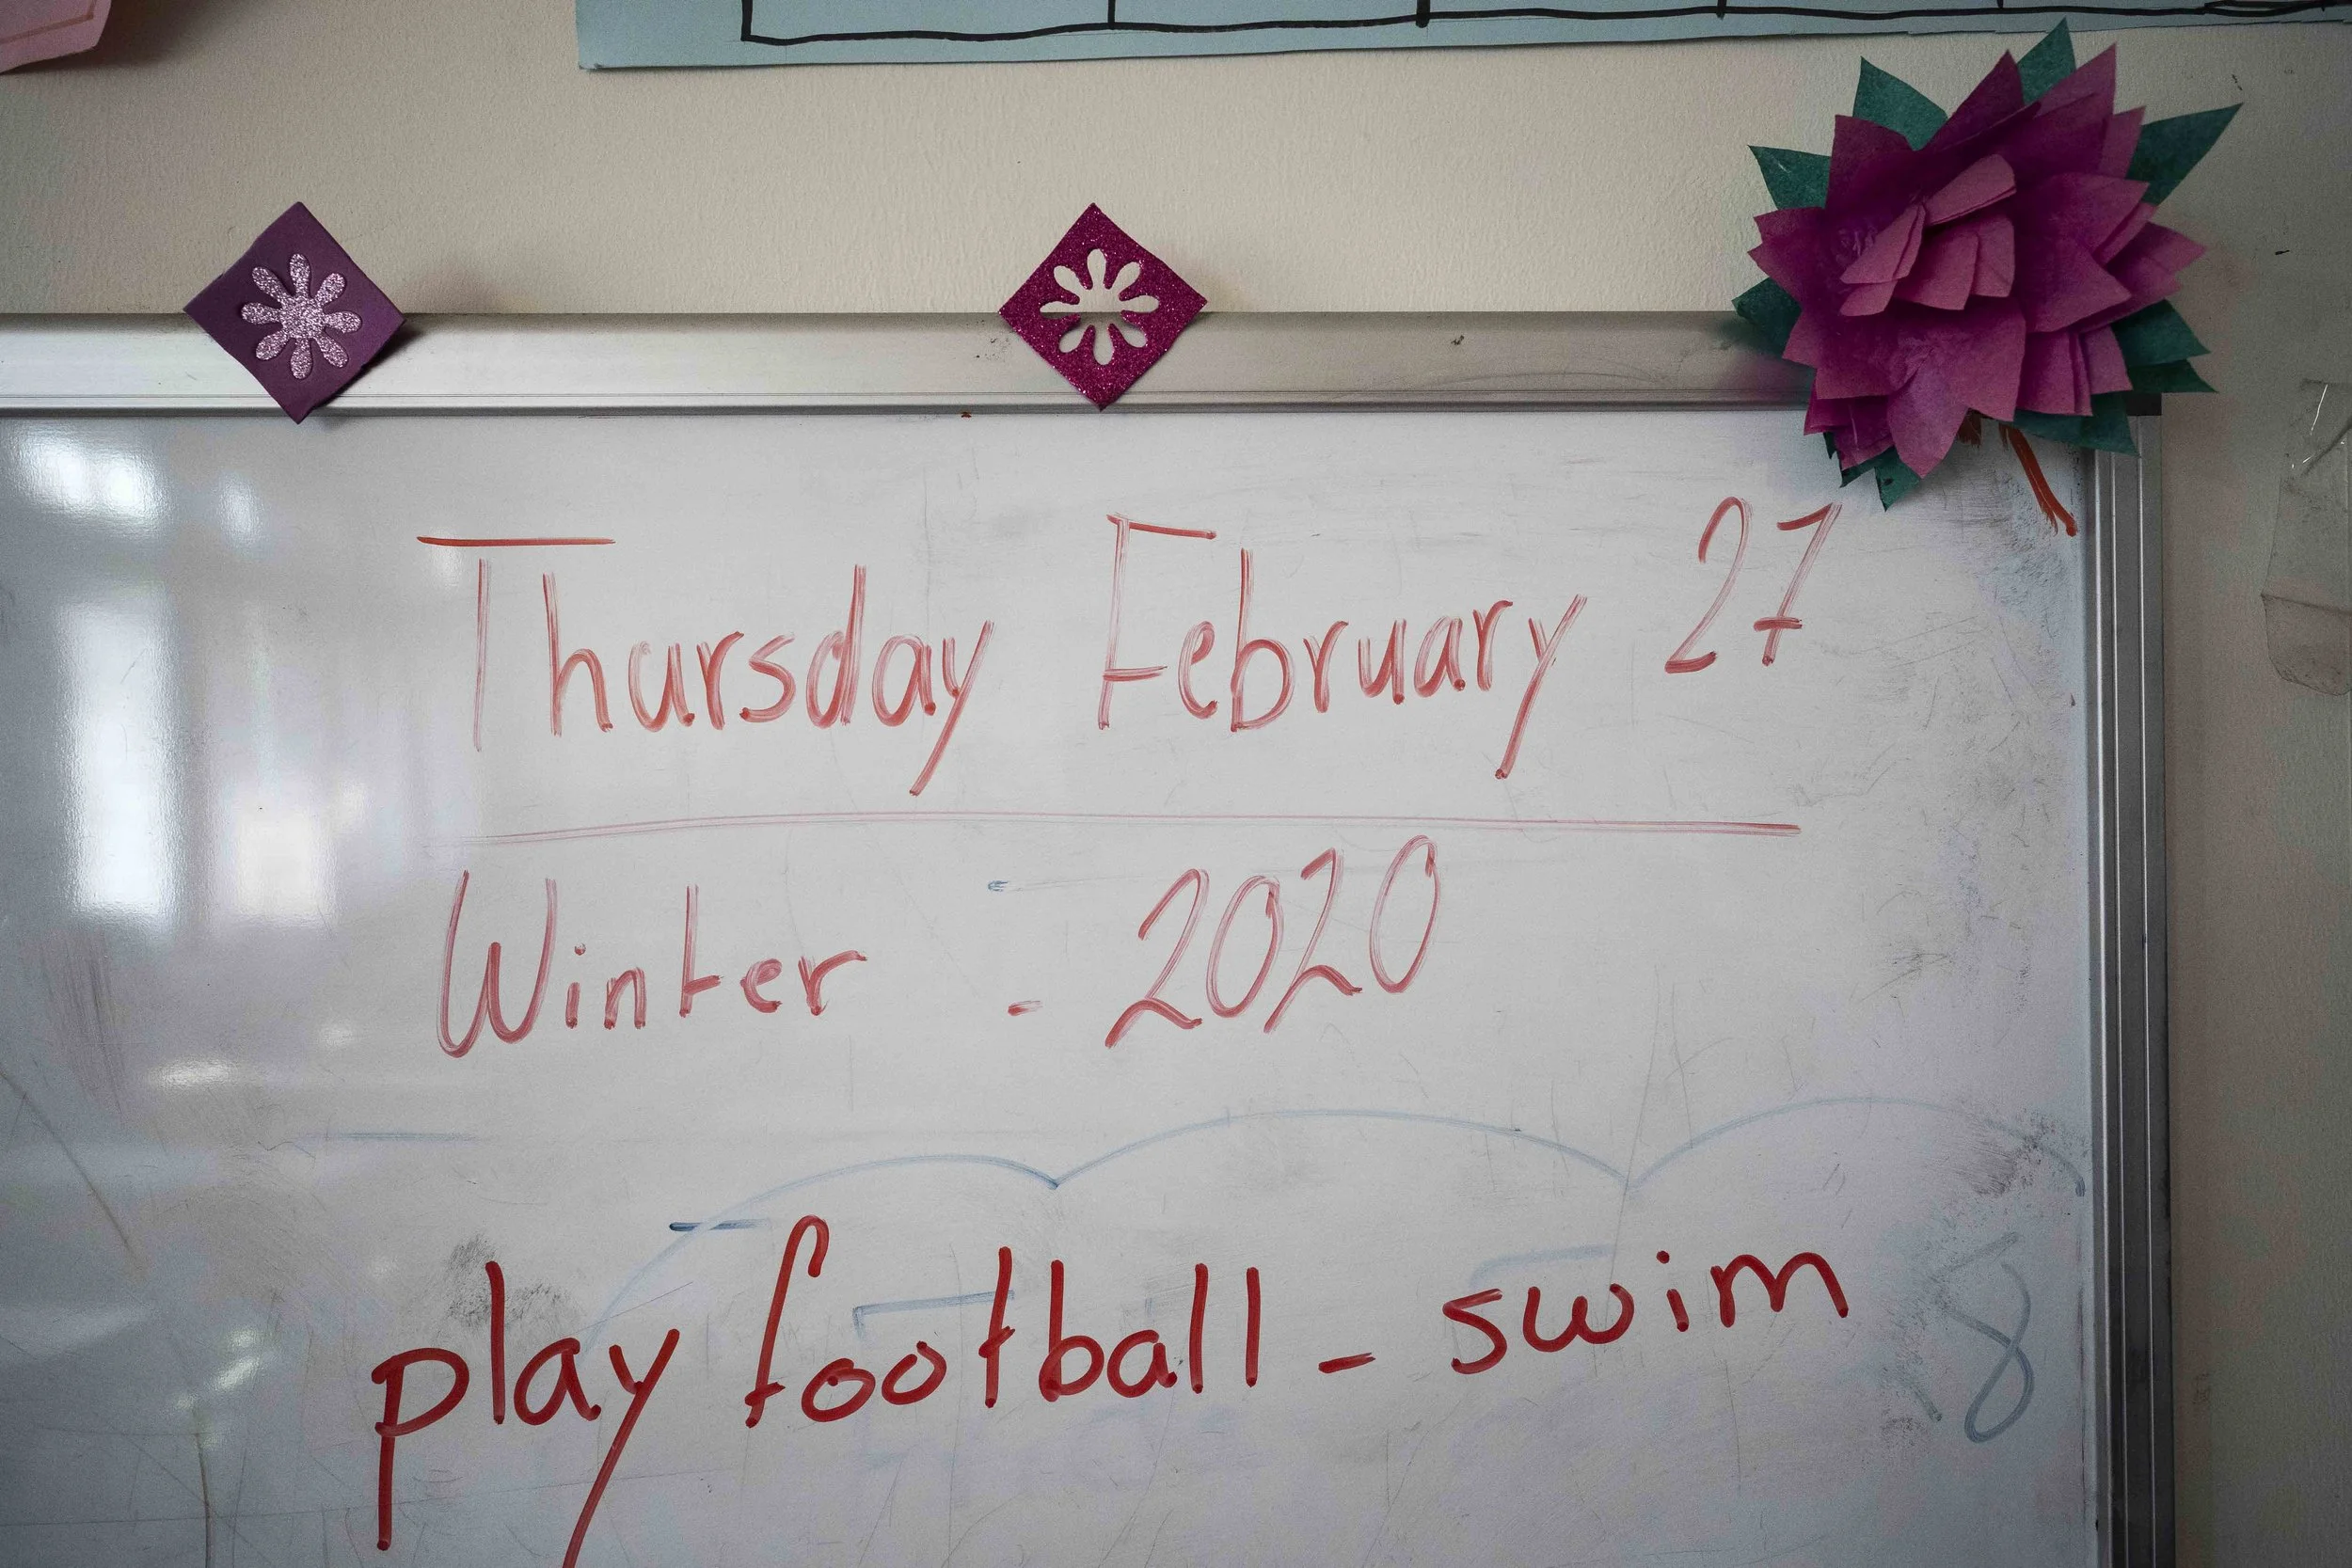 Thursday February 27
Winter - 2020
play football - swim
8